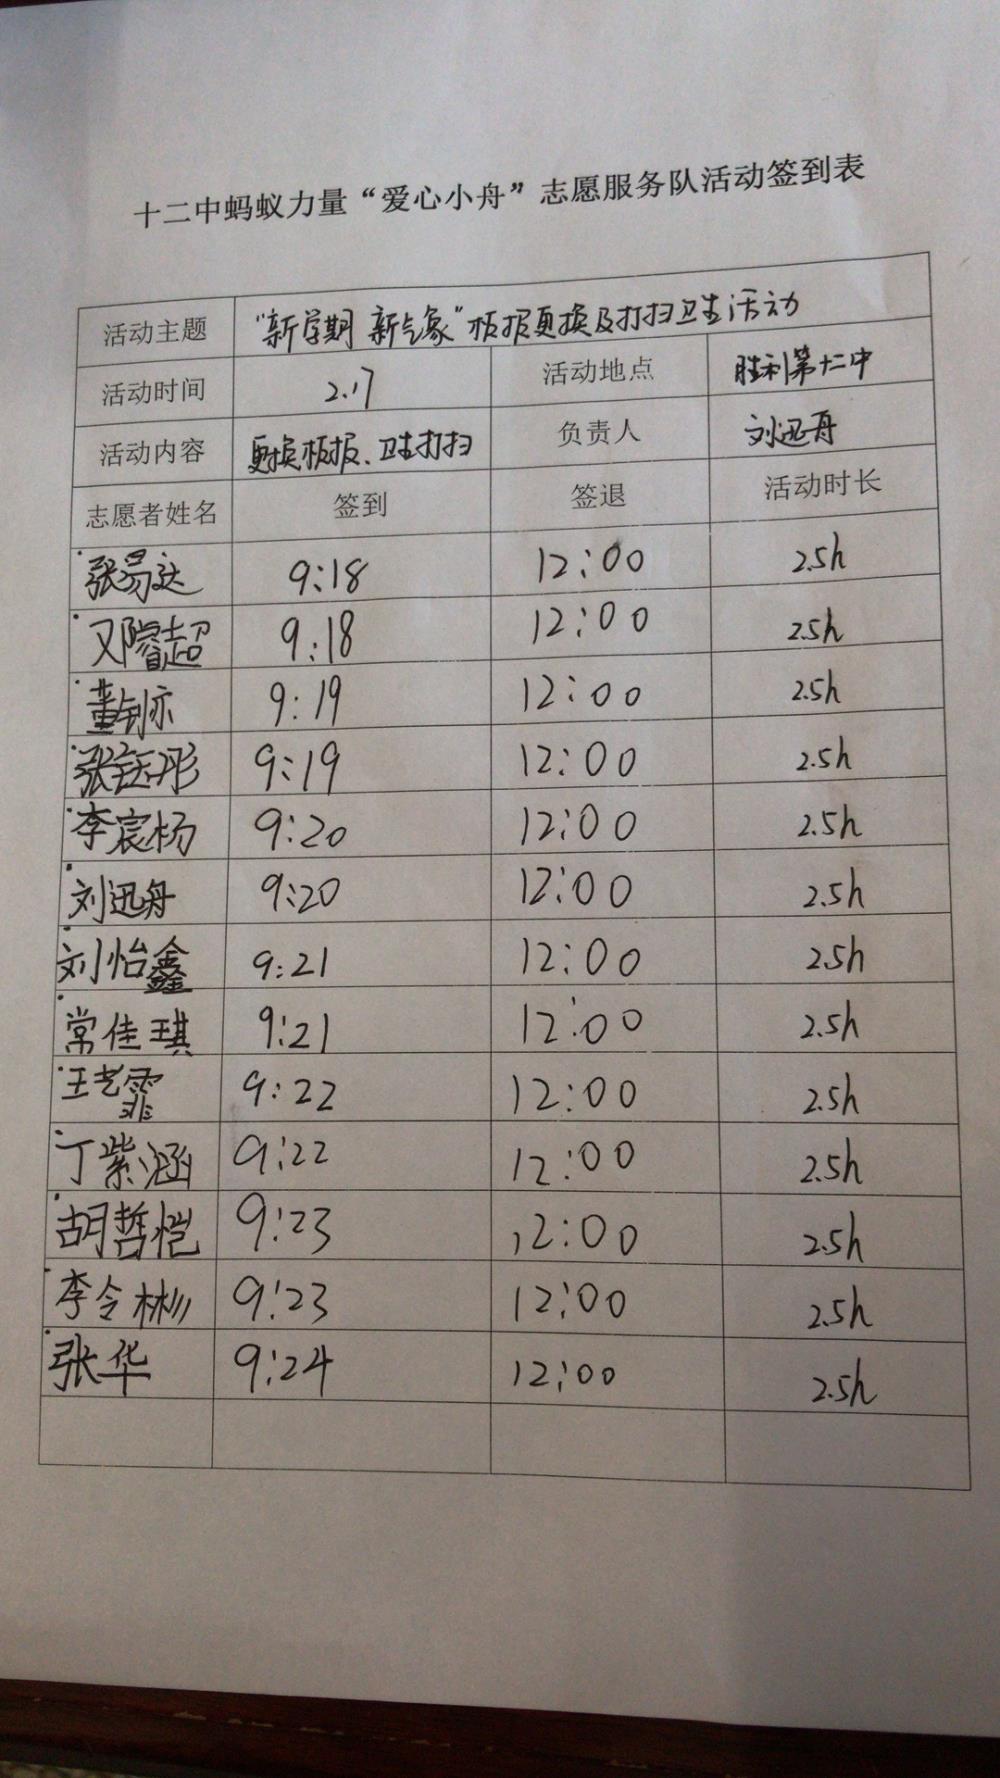 十二中蚂蚁力量“爱心小舟”志愿服务队活动签到表
活动主题 “新学期 新气象”板报更换及打扫卫生活动
活动时间 2.17 活动地点 胜利第十二中
活动内容 更换板报、卫生打扫 负责人 刘迅舟
志愿者姓名 签到 签退 活动时长
张易达 9:18 12:00 2.5h
邓睿超 9:18 12:00 2.5h
董钊亦 9:19 12:00 2.5h
张钰彤 9:19 12:00 2.5h
李宸杨 9:20 12:00 2.5h
刘迅舟 9:20 12:00 2.5h
刘怡鑫 9:21 12:00 2.5h
常佳琪 9:21 12:00 2.5h
王艺霏 9:22 12:00 2.5h
丁紫涵 9:22 12:00 2.5h
胡哲恺 9:23 12:00 2.5h
李令彬 9:23 12:00 2.5h
张华 9:24 12:00 2.5h